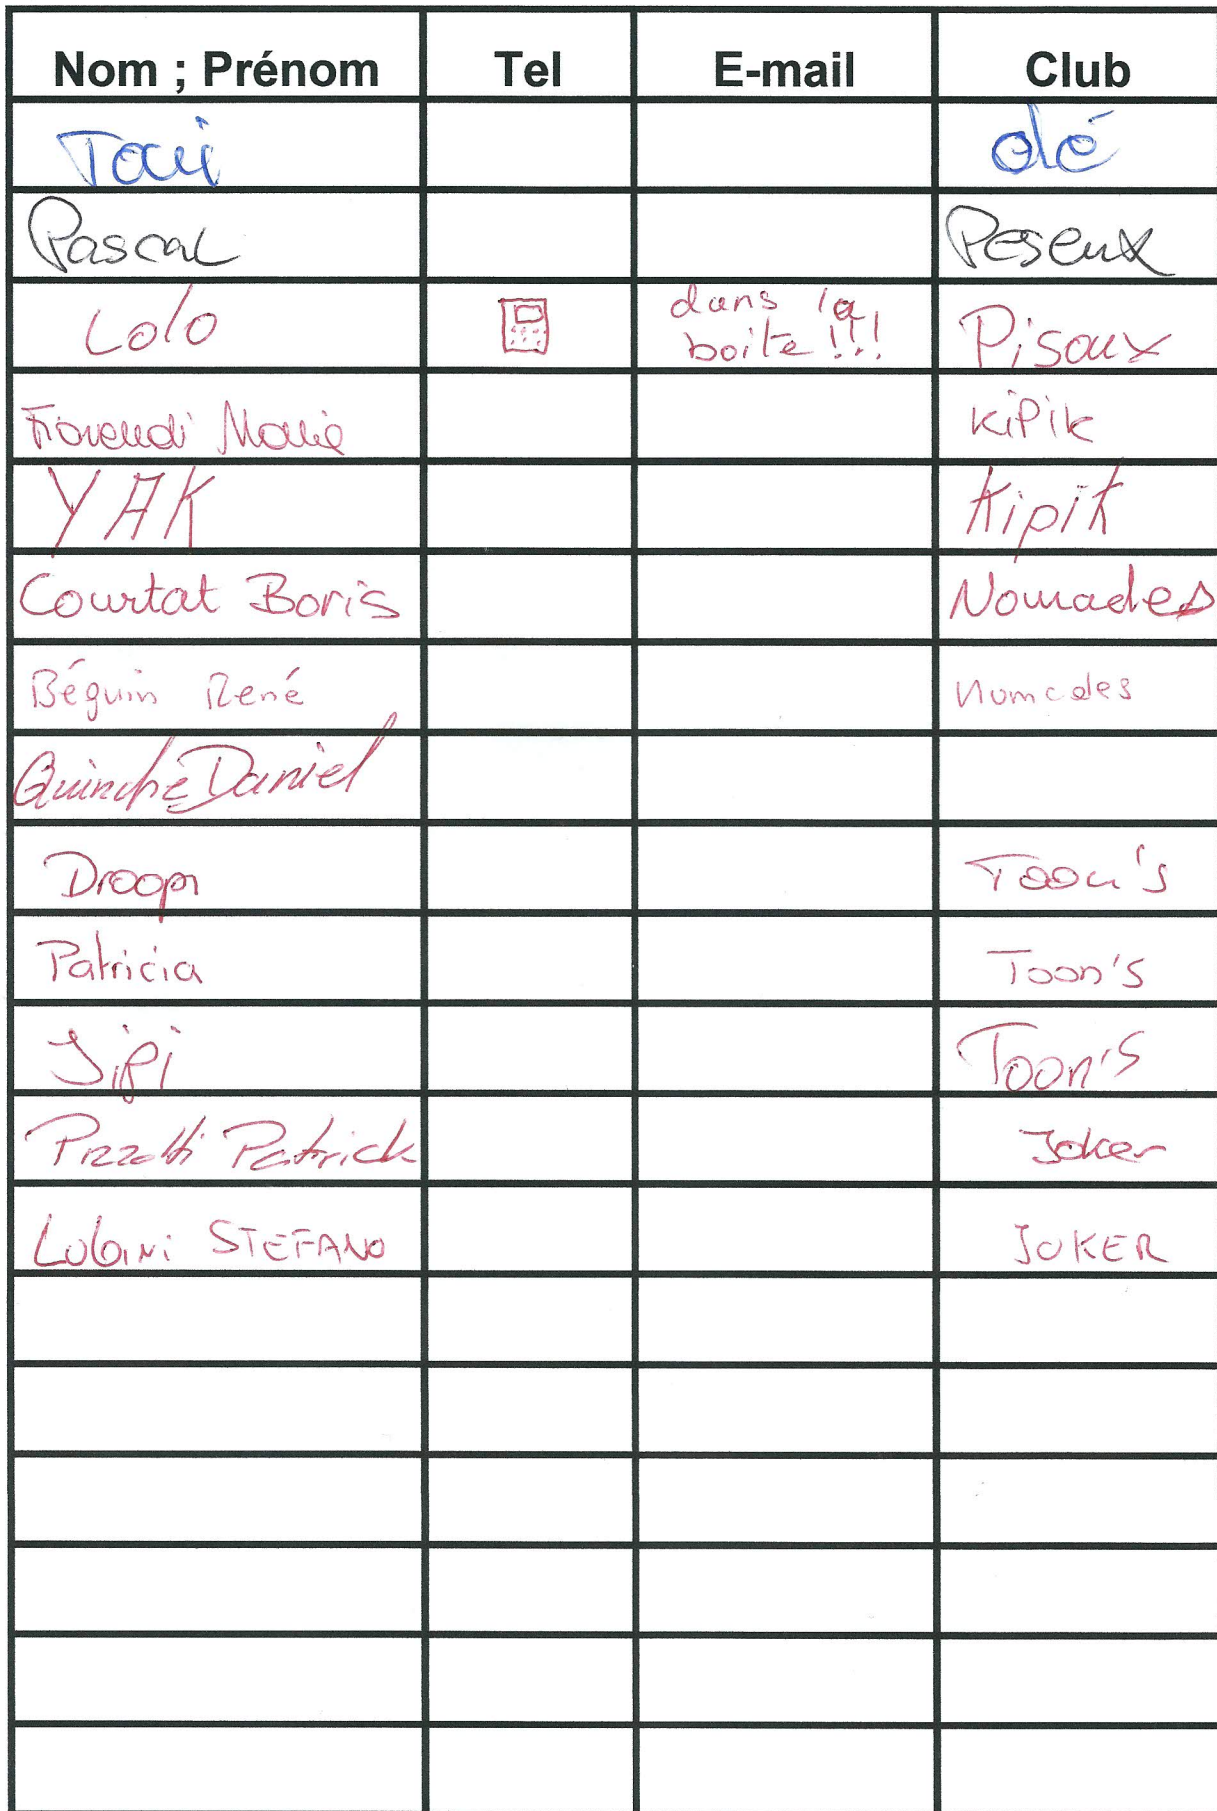 Nom ; Prénom Tel E-mail Club
Toni olé
Pascal Peseux
Lolo dans la boite !!! Pisoux
Marie KiPiK
YAK Kipik
Courtat Boris Nomades
Béguin René Nomades
Quinche Daniel
Droopi Toon's
Patricia Toon's
Jipi Toon's
Pizzotti Patrick Joker
Lubini STEFANO JOKER